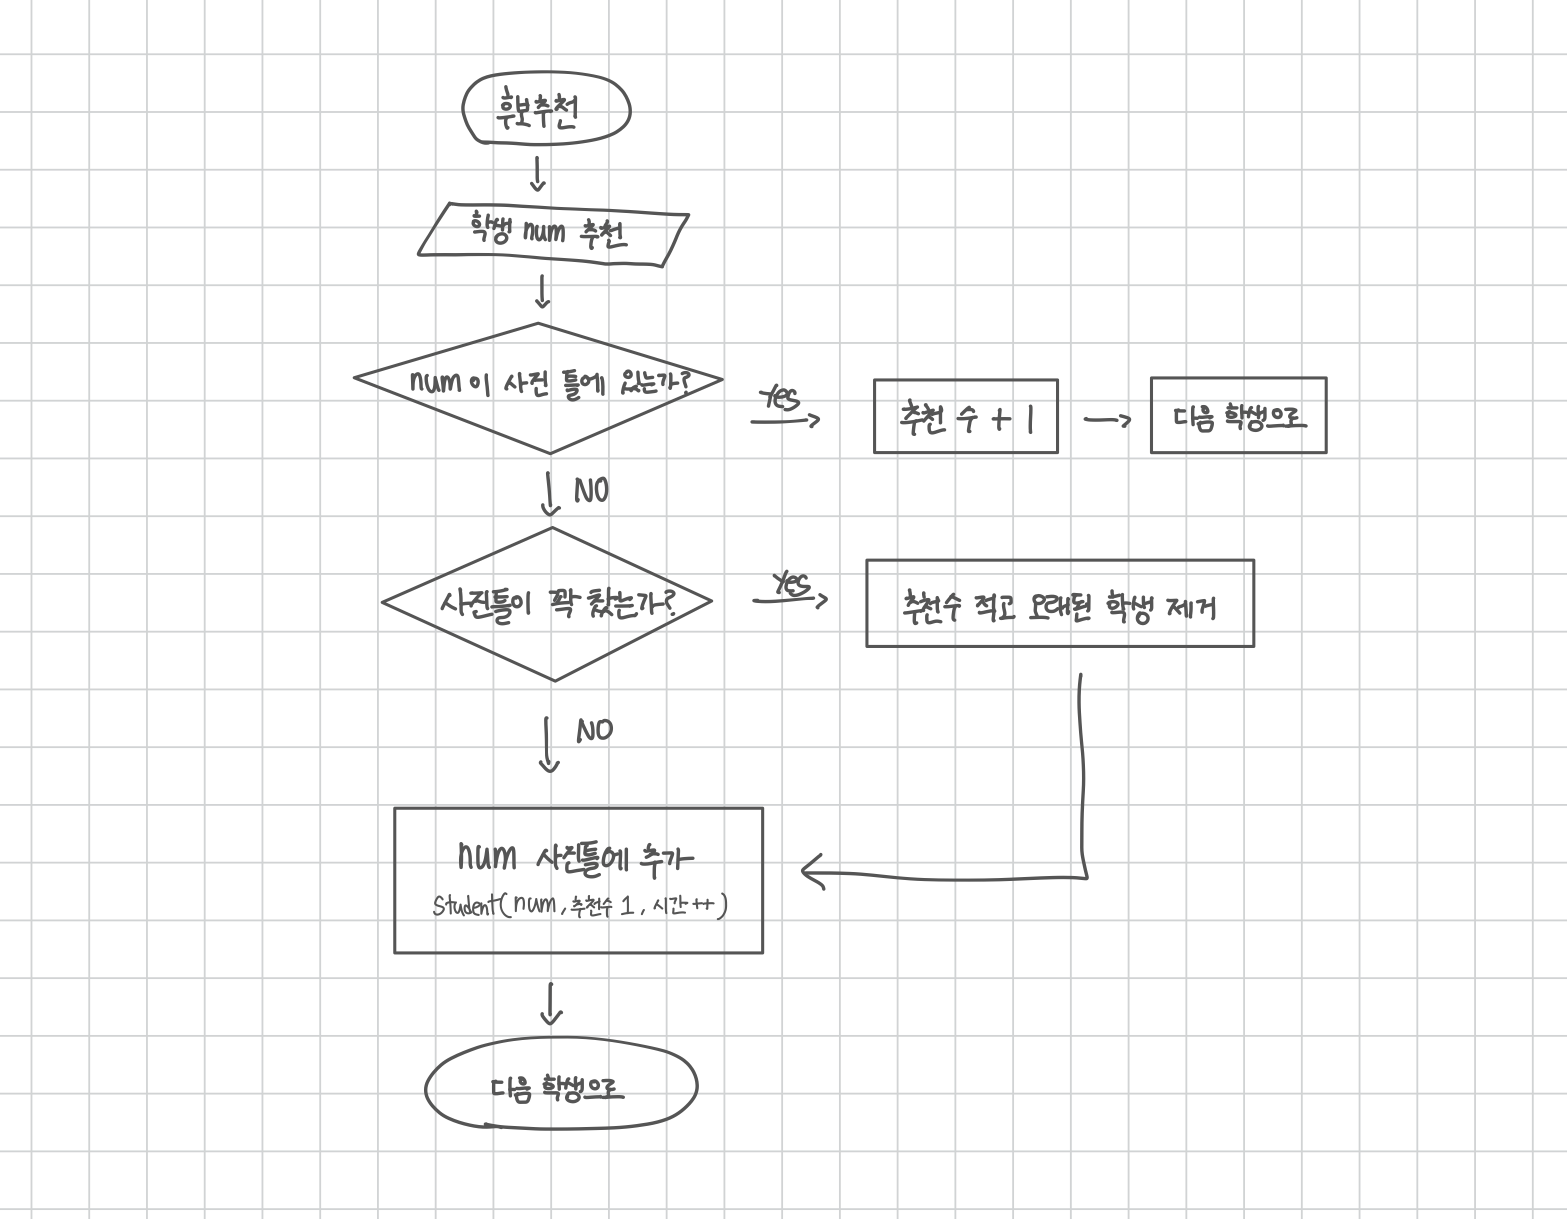 후보추천
학생 num 추천
num이 사진 틀에 있는가?
Yes
추천 수 + 1
다음 학생으로
NO
사진틀이 꽉 찼는가?
Yes
추천수 적고 오래된 학생 제거
NO
num 사진틀에 추가
Student(num, 추천수 1, 시간++)
다음 학생으로